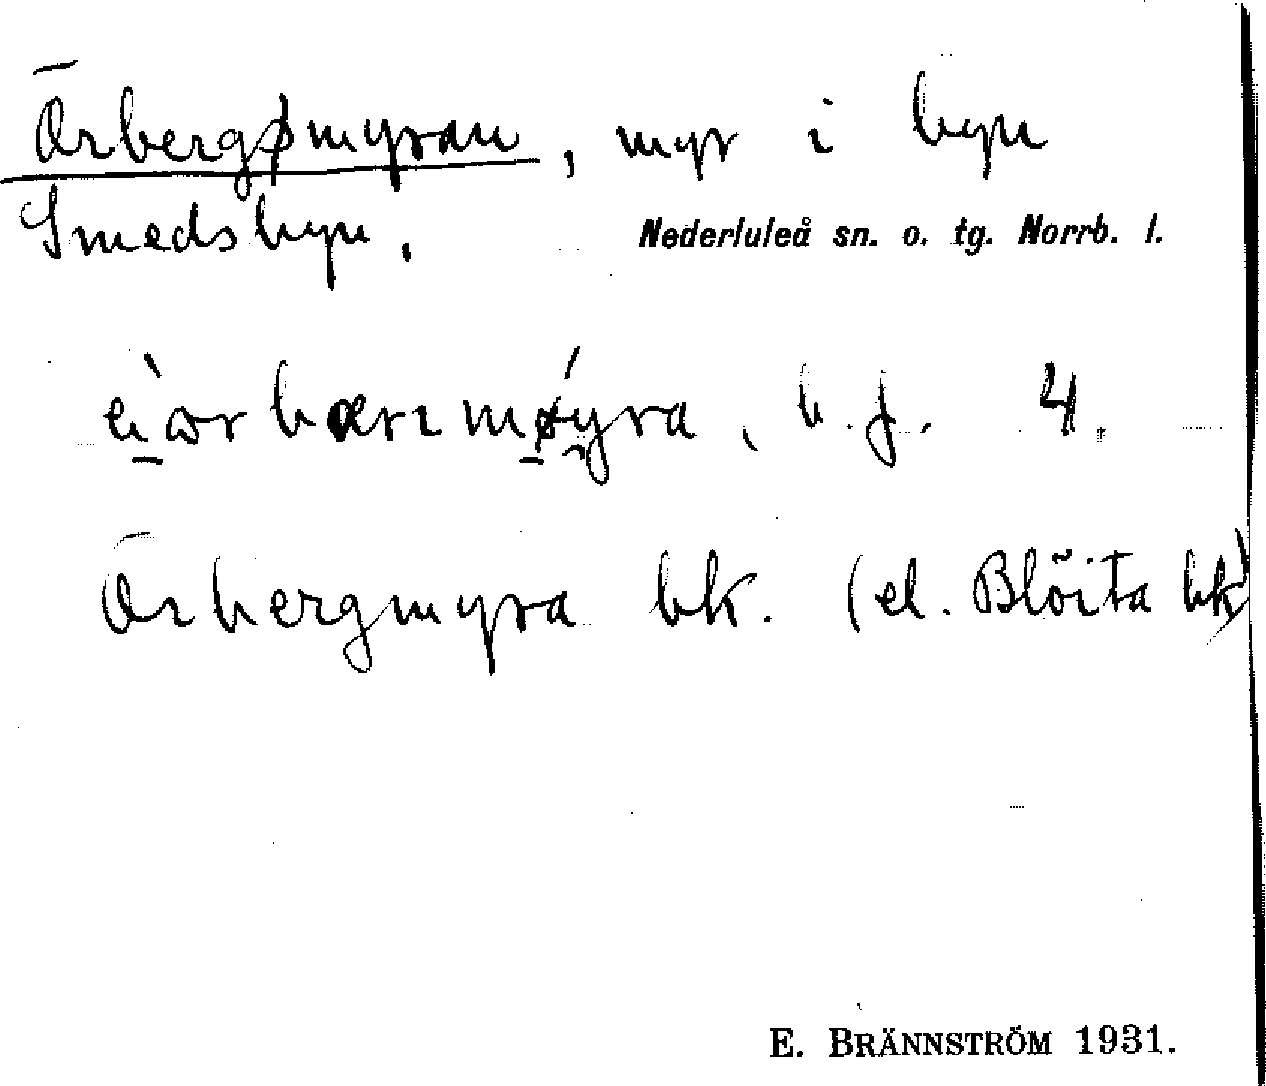 Örbergsmyran, myr i byn
Smedsbyn. Nederluleå sn. o. tg. Norrb. l.
b. f. 4.
Örbergmyra bk. (el. Blöita bk)
E. BRÄNNSTRÖM 1931.